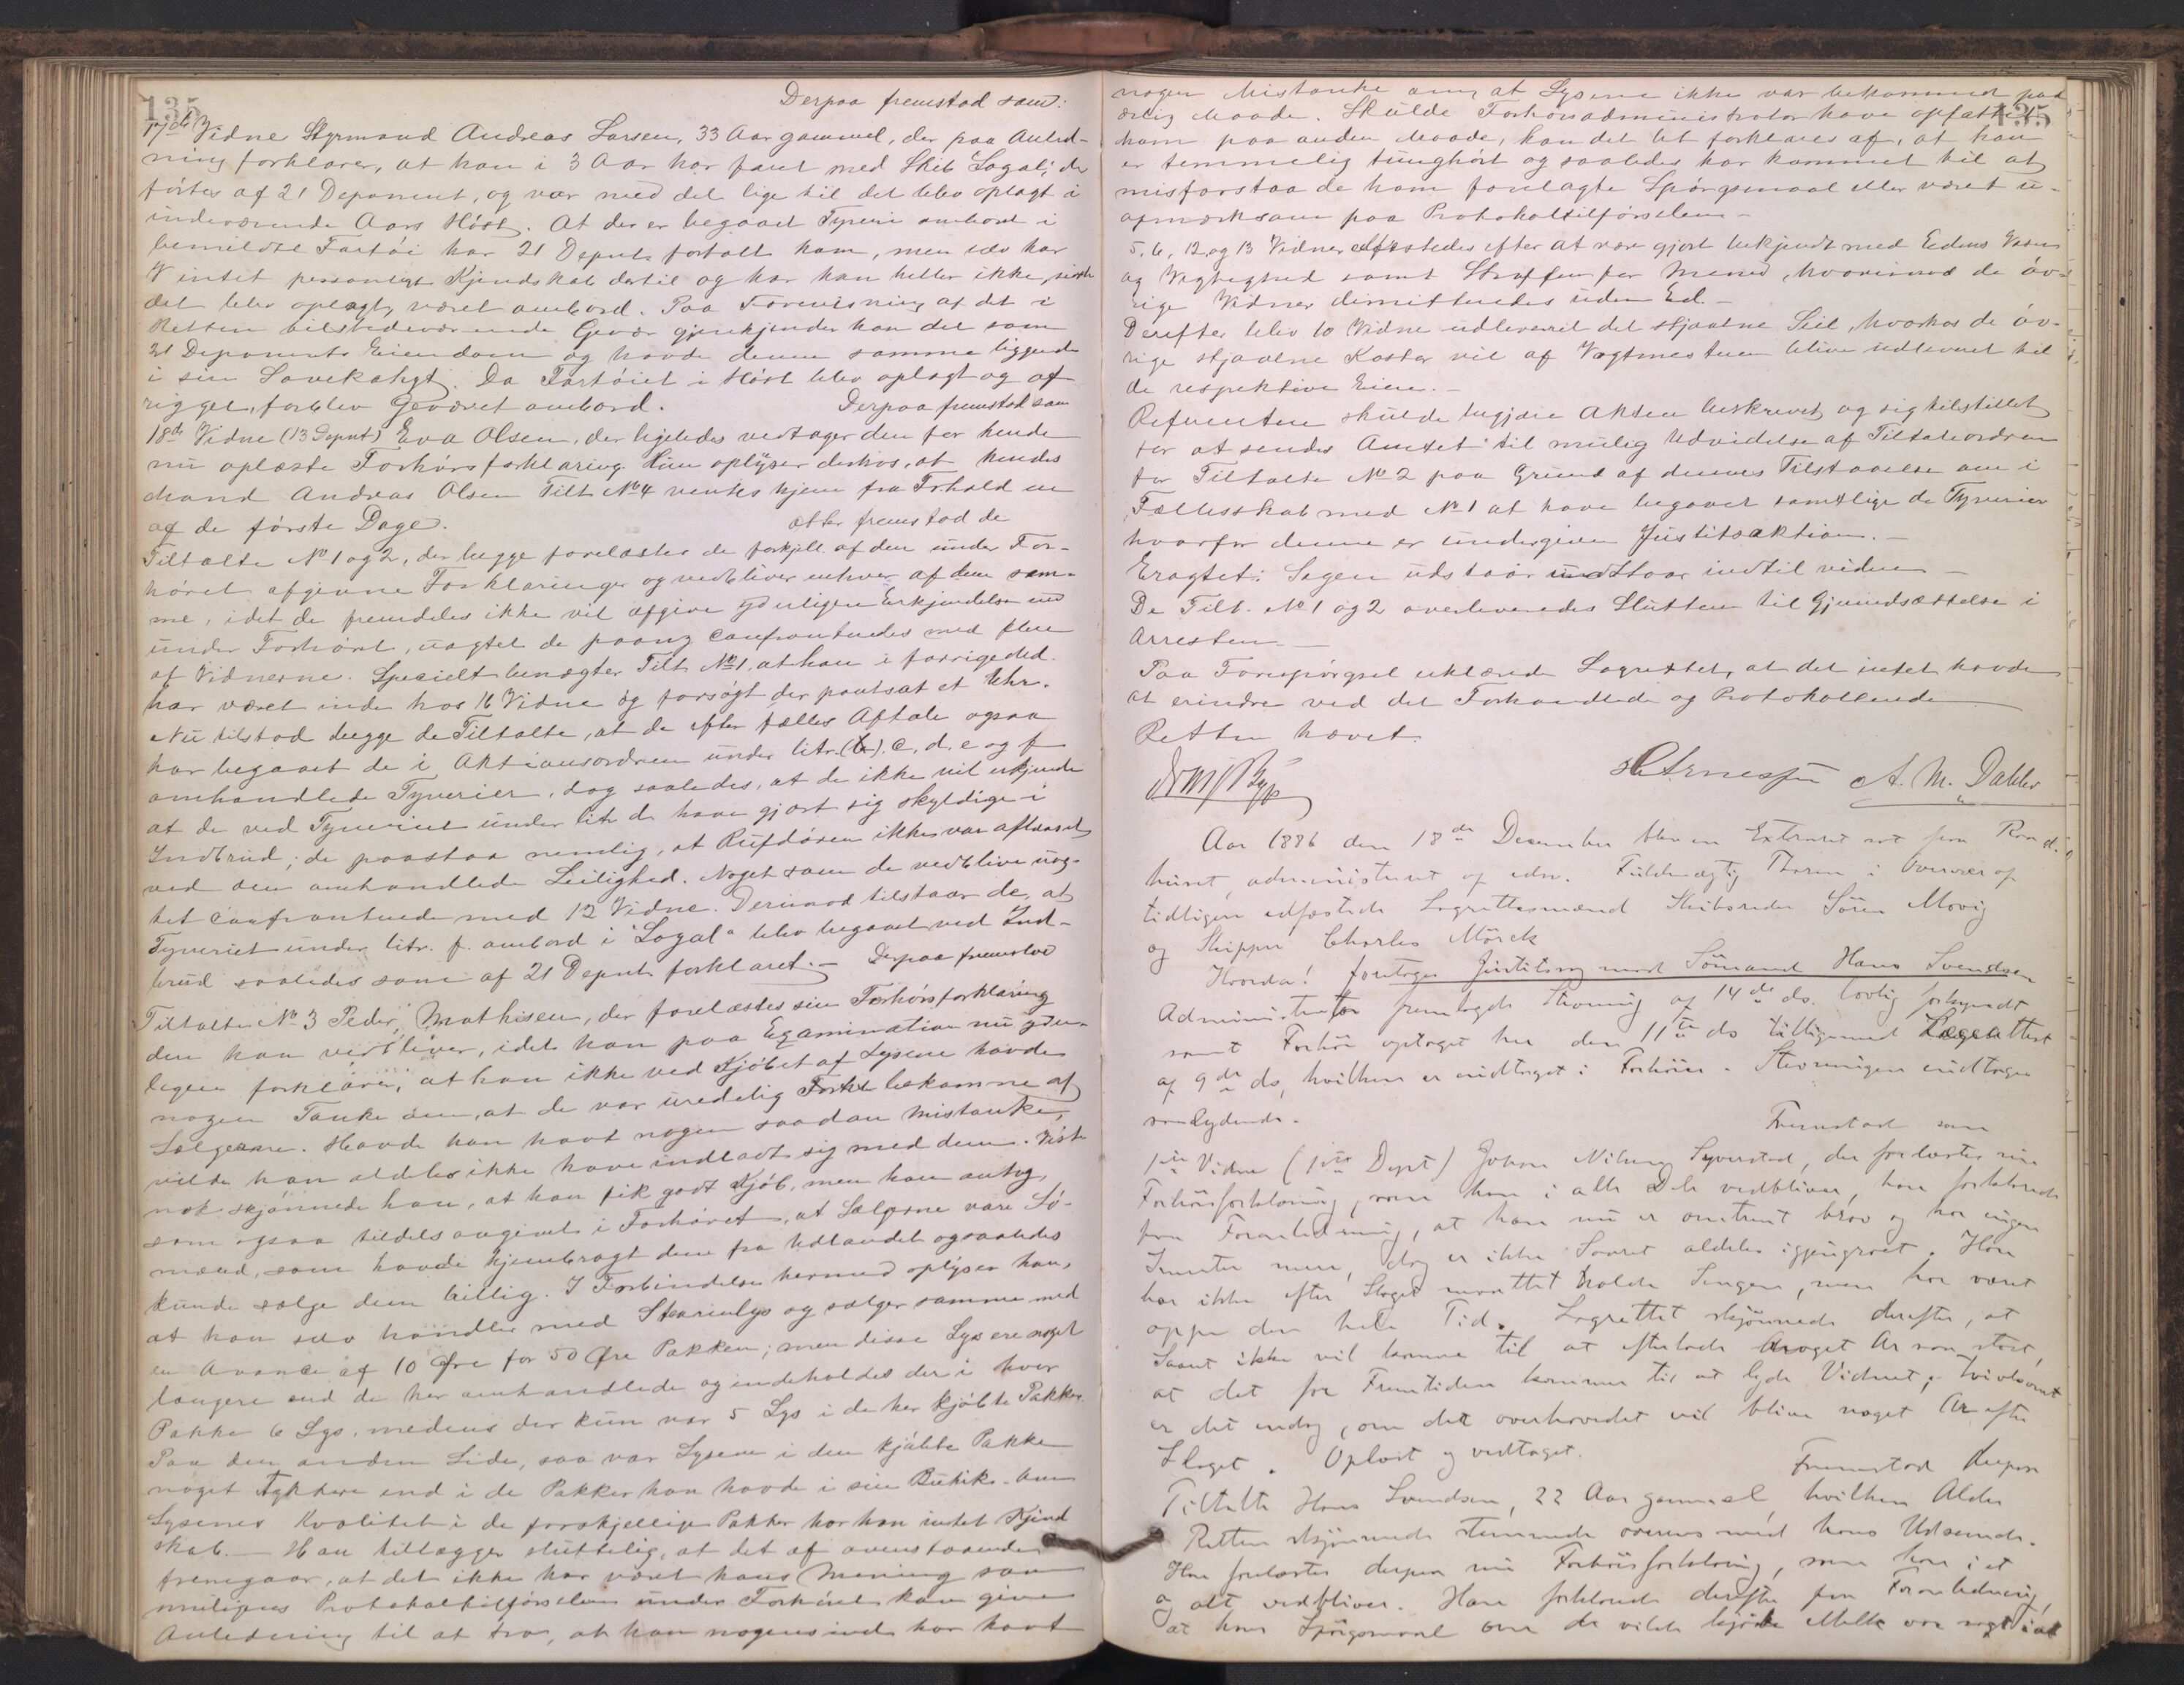 135
Derpaa fremstod som:
17de Vidne Styrmand Andreas Larsen, 33 Aar gammel, der paa Anled-
ning forklarer, at han i 3 Aar har faret med Skib "Logal", der
førtes af 21 Deponent, og var med det lige til det blev oplagt i
indeværende Aars Høst. At der er begaaet Tyveri ombord i
bemeldte Fartøi har 21 Deput. fortalt ham, men selv har
V intet personligt Kjendskab dertil og har han heller ikke, siden
det blev oplagt, været ombord. Paa Forevisning af det i
Retten tilstedeværende Gevær gjenkjender han det som
21 Deponents Eiendom og havde denne samme liggende
i sin Lavekahyt. Da Fartøiet i Høst blev oplagt og af
rigget, forblev Geværet ombord. Derpaa fremstod som
18de Vidne (13 Deput) Eva Olsen, der ligeledes vedtager den for hende
nu oplæste Forhørsforklaring. Hun oplyser derhos, at hendes
Mand Andreas Olsen Tilt. No 4 ventes hjem fra Forhold en
af de første Dage. atter fremstod de
Tiltalte No 1 og 2, der begge forelæstes de forskjell. af dem under For-
høret afgivne Forklaringer og vedbliver enhver af dem sam-
me, idet de fremdeles ikke vil afgive yderligere Erkjendelse end
under Forhøret, uagtet de paany confronteredes med flere
af Vidnerne. Specielt benægter Tilt No 1, at han i forrige Md.
har været inde hos 16 Vidne og forsøgt der pantsat et Uhr.
Nu tilstod begge de Tiltalte, at de efter fælles Aftale ogsaa
har begaaet de i Aktionsordren under litr. (b). c, d, e og f
omhandlede Tyverier, dog saaledes, at de ikke vil erkjende
at de ved Tyveriet under litr d have gjort sig skyldige i
Indbrud; de paastaa nemlig, at Rufdøren ikke var aflaaset
ved den omhandlede Leilighed. Noget som de vedblive uag-
tet confronterede med 12 Vidne. Derimod tilstaar de, at
Tyveriet under litr. f. ombord i "Logal" blev begaaet ved Ind-
brud saaledes som af 21 Deput. forklaret. – Derpaa fremstod
Tiltalte No 3 Peder Mathisen, der forelæstes sin Forhørsforklaring
den han vedbliver, idet han paa Examination nu yder-
ligere forklarer, at han ikke ved Kjøbet af Lysene havde
nogen Tanke om, at de var uredelig bekomne af
Sælgerne. Havde han havt nogen saadan Mistanke,
vilde han aldeles ikke have indladt sig med dem. Vist
nok skjønnede han, at han fik godt Kjøb, men han antog,
som ogsaa tildels angivet i Forhøret, at Sælgerne vare Sø-
mænd, som havde hjembragt dem fra Udlandet og saaledes
kunde sælge dem billig. I Forbindelse hermed oplyser han,
at han selv handler med Stearinlys og sælger samme med
en Avance af 10 Øre for 50 Øre Pakken; men disse Lys ere noget
længere end de her omhandlede og indeholdes der i hver
Pakke 6 Lys, medens der kun var 5 Lys i de her kjøbte Pakker.
Paa den anden Side, saa var Lysene i den kjøbte Pakke
noget tykkere end i de Pakker han havde i sin Butik. Om
Lysenes Kvalitet i de forskjellige Pakker har han intet Kjend
skab. – Han tillægger sluttelig, at det af ovenstaaende
fremgaar, at det ikke har været hans Mening som
muligens Protokoltilførslen under Forhøret kan give
Anledning til at tro, at han nogensinde har havt
135
nogen Mistanke om, at Lysene ikke var bekommet paa
ærlig Maade. Skulde Forhørsadministrator have opfattet
ham paa anden Maade, kan det let forklares af, at han
er temmelig tunghørt og saaledes har kommet til at
misforstaa de ham forelagte Spørgsmaal eller været u-
opmærksom paa Protokoltilførselen –
5, 6, 12, og 13 Vidner edfæstedes efter at være gjort bekjendt med Edens Væsen
og Vigtighed samt Straffen for Mened, hvorimod de øv-
rige Vidner dimitteredes uden Ed. –
Derefter blev 10 Vidne udleveret det stjaalne Seil, hvorhos de øv-
rige stjaalne Koster vil af Vagtmesteren blive udleveret til
de respektive Eiere. –
Referenten skulde begjære Akten beskrevet og sig tilstillet
for at sendes Amtet til mulig Udvidelse af Tiltaleordren
for Tiltalte No 2 paa Grund af dennes Tilstaaelse om i
Fællesskab med No 1 at have begaaet samtlige de Tyverier
hvorfor denne er undergiven Justitsaktion. –
Eragtet: Sagen udstaar indtil videre –
De Tilt. No 1 og 2 overleveredes Slutteren til Gjenindsættelse i
Arresten. –
Paa Forespørgsel erklærede Lagrettet, at det intet havde
at erindre ved det Forhandlede og Protokollerede
Retten hævet.
H Arnesen A. M. Dahler
Aar 1886 den 18de December blev en Extraret sat paa Raad-
huset, administreret af edsv. Fuldmægtig Thorne i Overvær af
tidligere edfæstede Lagrettesmænd Skibsreder Søren Movig
og Skipper Charles Mørck
Hvorda! foretoges Justitssag mod Sømand Hans Svendsen
Administrator fremlagde Stevning af 14de ds. lovlig forkyndt
samt Forhør optaget her den 11te ds tilligemed Lægeattest
af 9de ds, hvilken er indtaget i Forhøret. Stevningen indtages
saalydende.
Fremstod som
1ste Vidne (1ste Dept) Johan Nilsen Syverstad, der forelæstes sin
Forhørsforklaring, som han i alle Dele vedbliver, han forklarede
paa Foranledning, at han nu er omtrent brav og har ingen
Smerter mere, dog er ikke Saaret aldeles igjengroet. Han
har ikke efter Slaget maattet holde Sengen, men har været
oppe den hele Tid. Lagrettet skjønnede derefter, at
Saaret ikke vil komme til at efterlade noget Ar saa stort,
at det for Fremtiden kommer til at lyde Vidnet, tvivlsomt
er det endog, om det overhovedet vil blive noget Ar efter
Slaget. Oplæst og vedtaget.
Fremstod derpaa
Tiltalte Hans Svendsen, 22 Aar gammel, hvilken Alder
Retten skjønnede stemmede overens med hans Udseende.
Han forelæstes derpaa sin Forhørsforklaring, som han i et
og alt vedbliver. Han forklarede derefter paa Foranledning,
at hans Spørgsmaal om de vilde kjøbe Melk var sagt i al